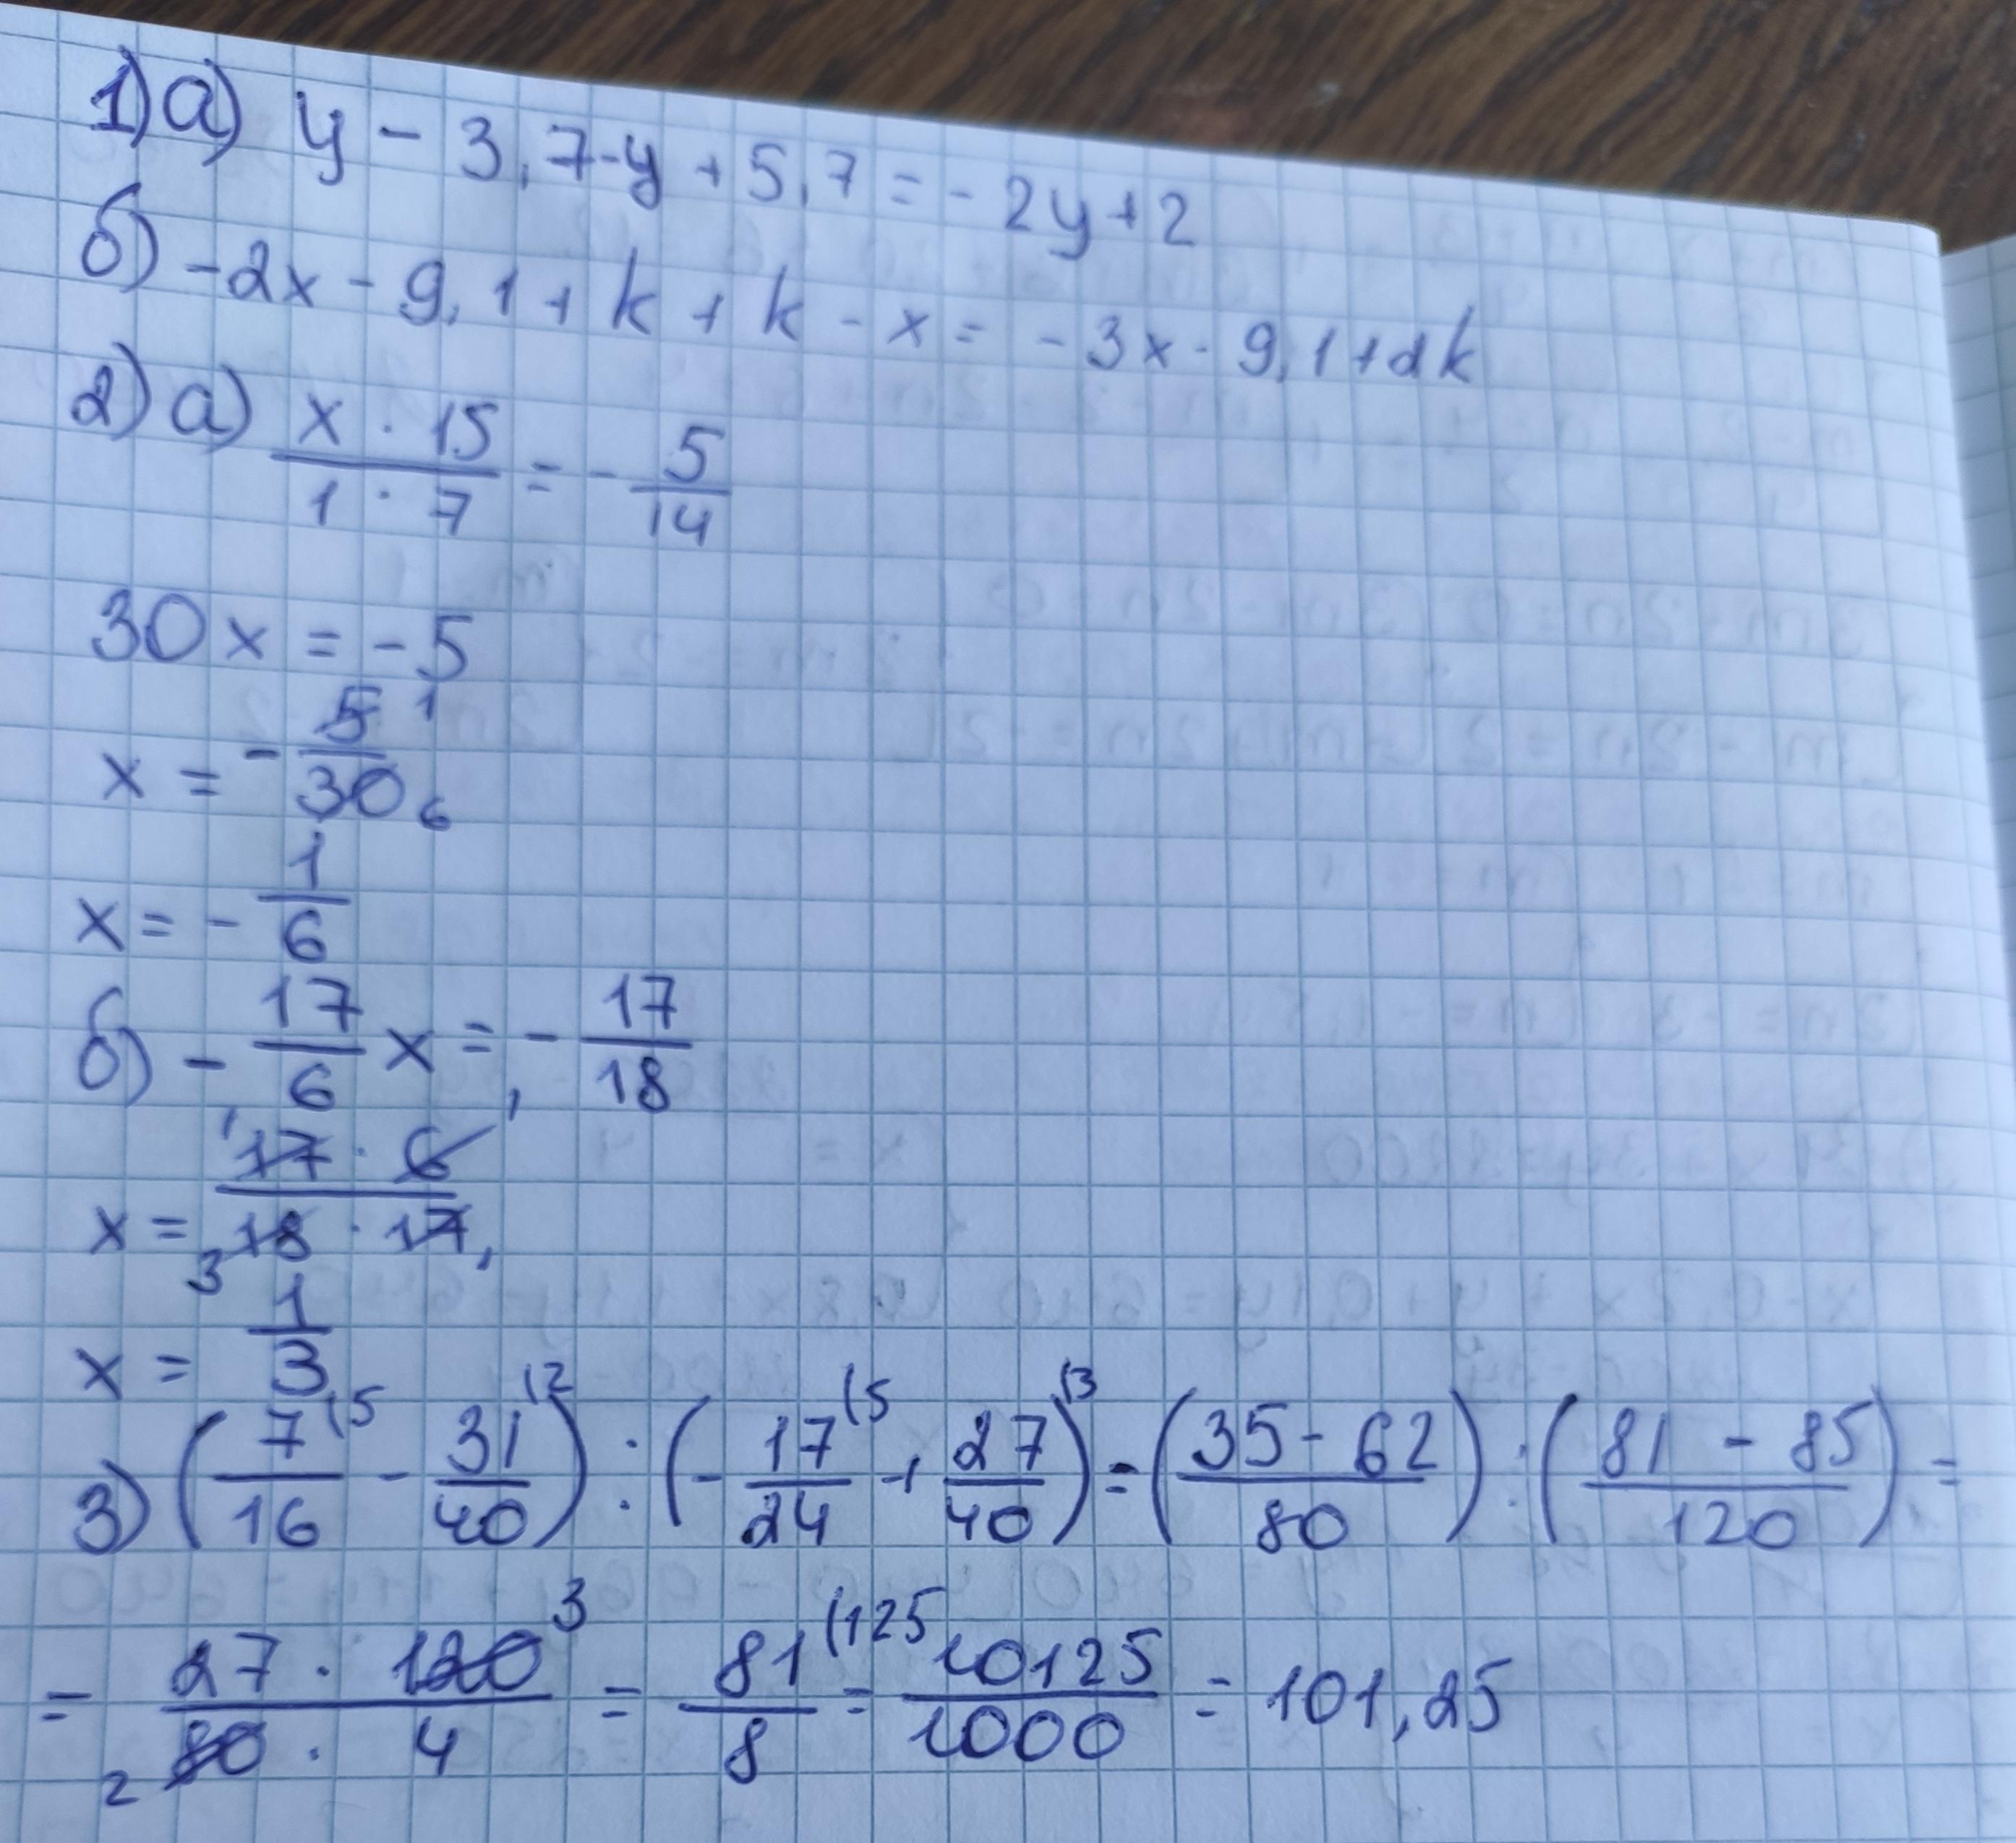 1) а) y - 3,7 - y + 5,7 = - 2y + 2
б) -2x - 9,1 + k + k - x = - 3x - 9,1 + 2k
2) а) x · 15 / 1 · 7 = - 5/14
30x = -5
x = - 5 1 / 30 6
x = - 1/6
б) - 17/6 x = - 17/18
x = 1 17 · 6 1 / 3 18 · 17 1
x = 1/3
3) (7/16 (5 - 31/40 (2) : (- 17/24 (5 + 27/40 (3) = (35 - 62 / 80) : (81 - 85 / 120) =
= 27 · 120 3 / 2 80 · 4 = 81/8 (125 = 10125/1000 = 101,25